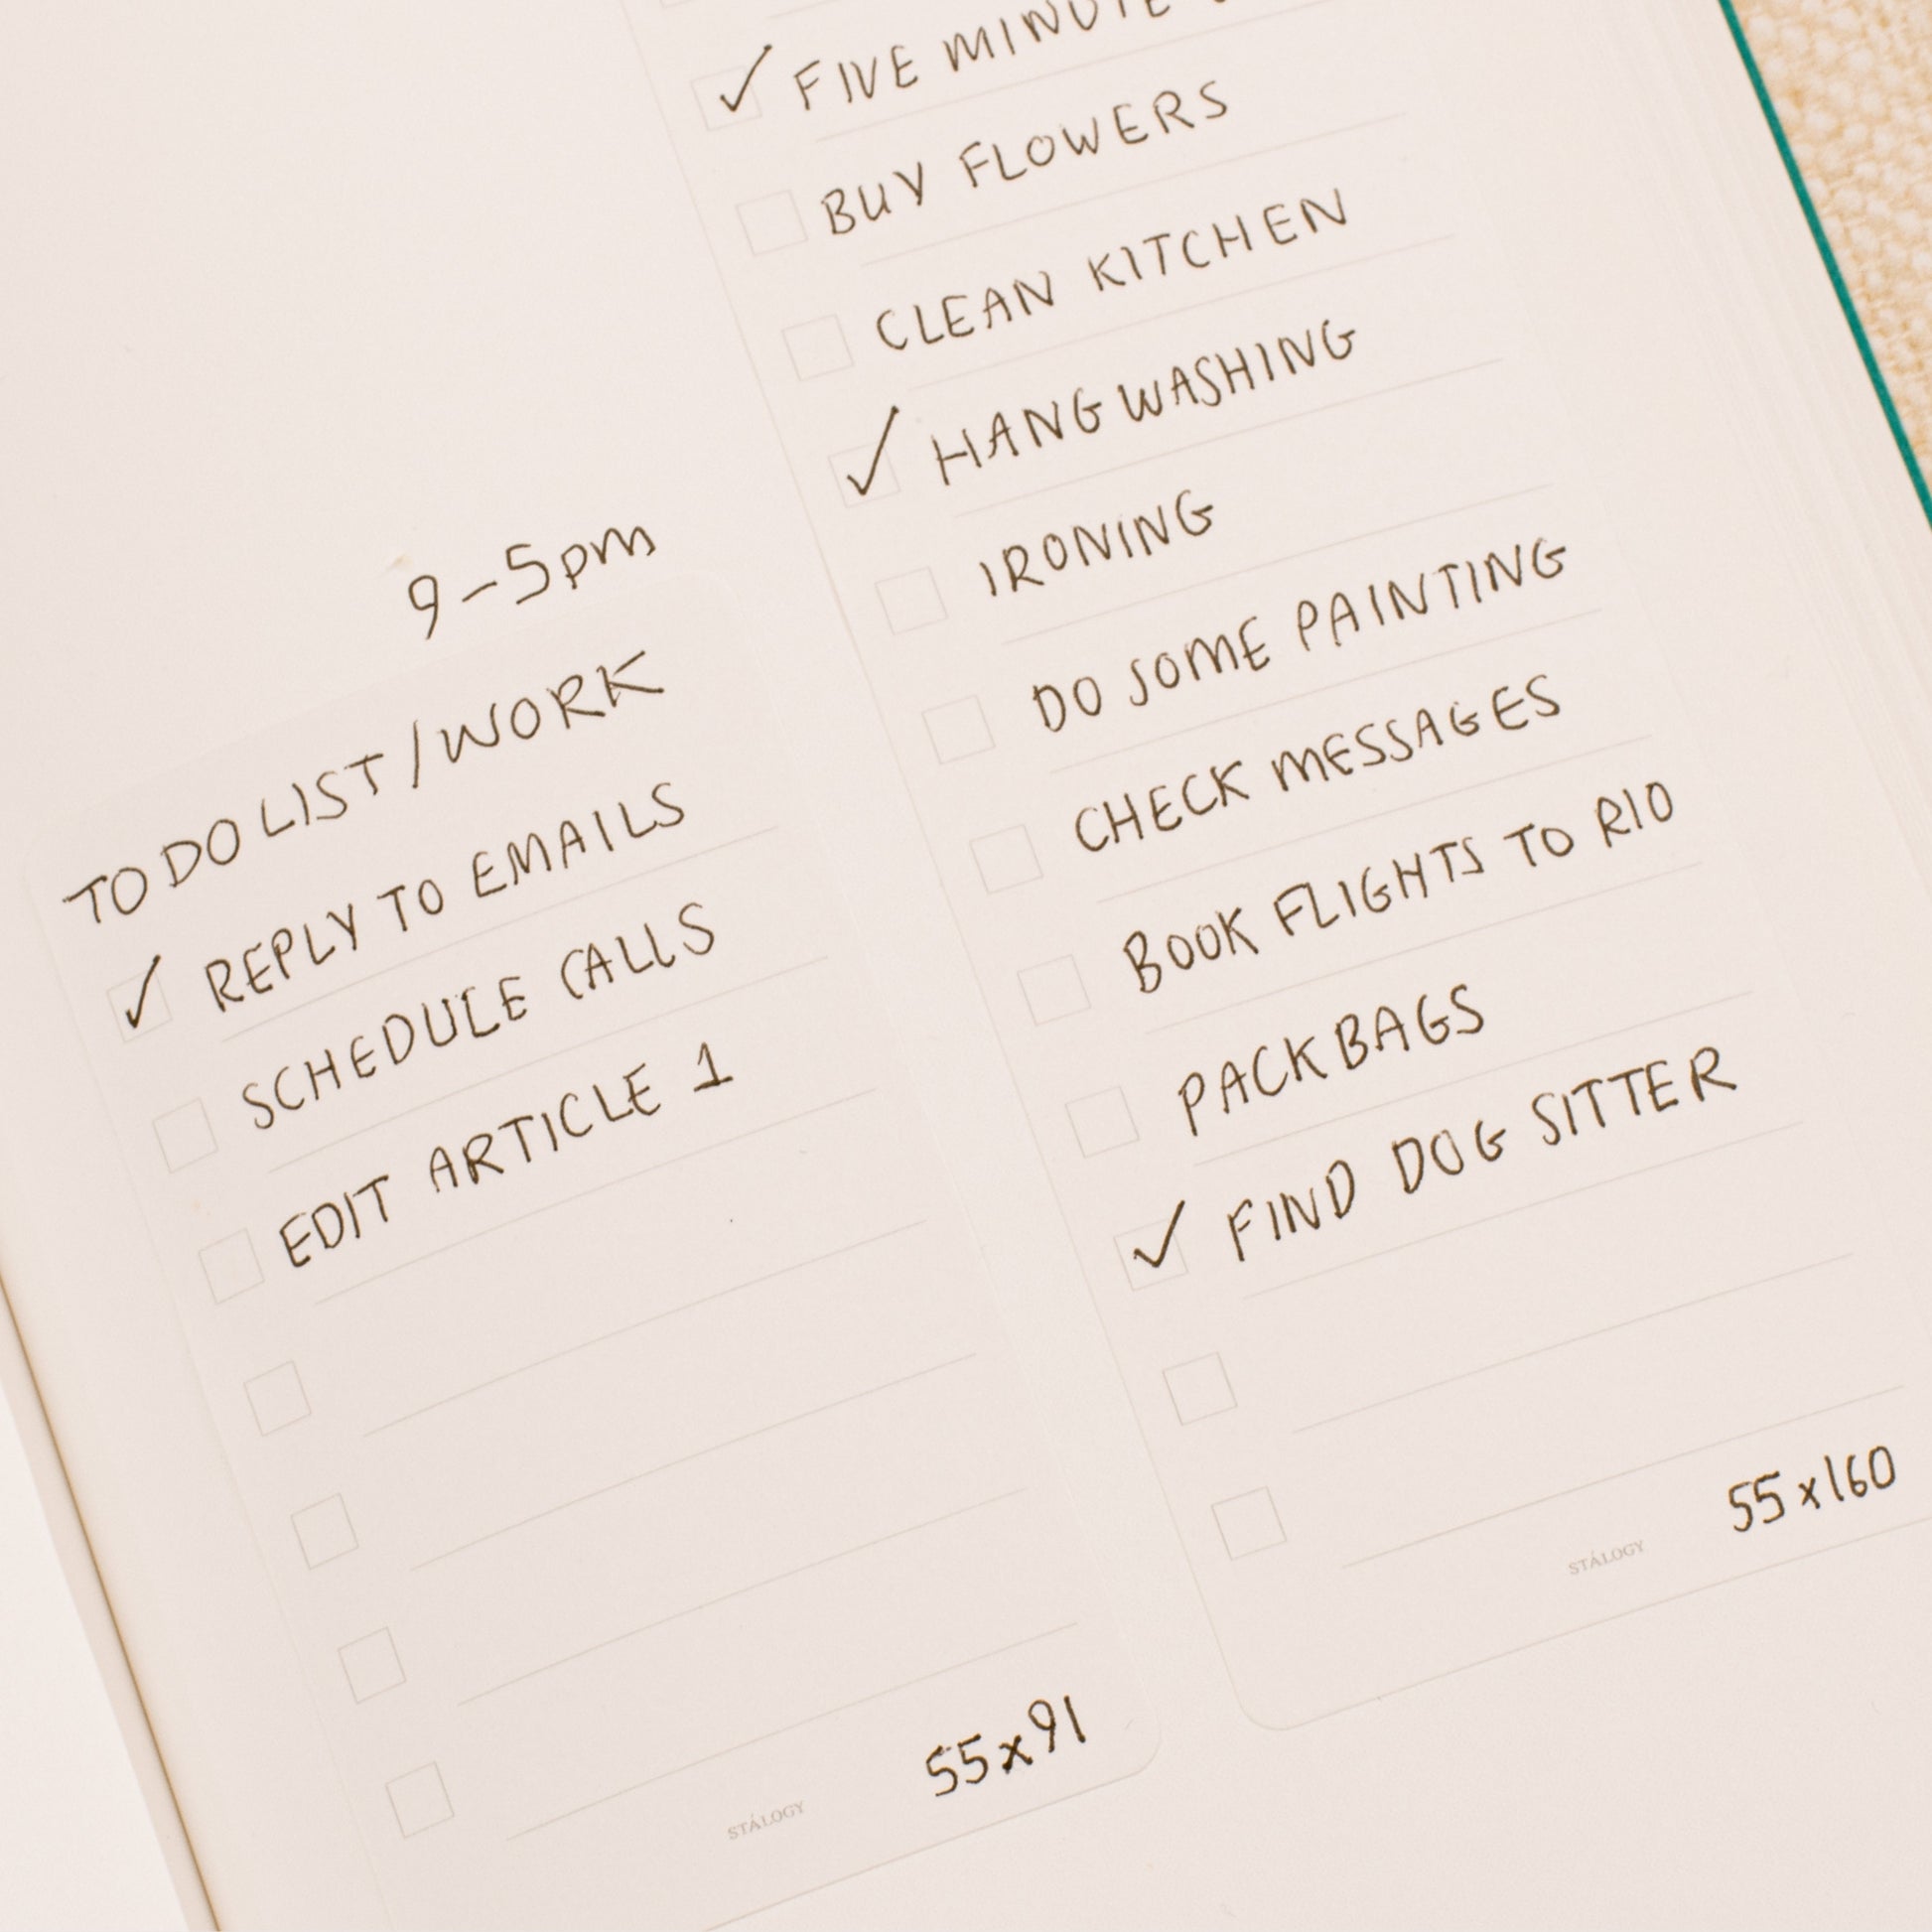 9-5pm
TO DO LIST/WORK
✓ REPLY TO EMAILS
SCHEDULE CALLS
EDIT ARTICLE 1
STÁLOGY
55x91
✓ FIVE MINUTE
BUY FLOWERS
CLEAN KITCHEN
✓ HANG WASHING
IRONING
DO SOME PAINTING
CHECK MESSAGES
BOOK FLIGHTS TO RIO
PACK BAGS
✓ FIND DOG SITTER
STÁLOGY
55x160